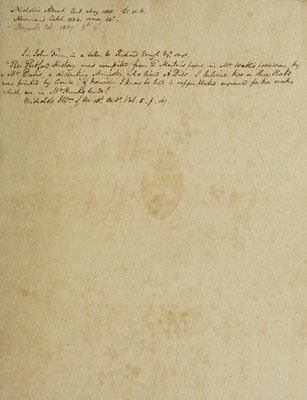 Nichols's Atmt Cat. May 1828. £1.11.6.
Newman's Catal. 1834. 14s.
Cat. 1837 8s 9d
Sir John Fenn, in a letter to Richard Gough Esq. says
"The Thetford History was compiled from T. Martin's papers in Mr. Worth's possession by
Mr. Davis, a dissenting Minister, who lived at Diss. I believe two or three sheets
was printed by Crouse of Norwich. I know he had copper plates engraved for the work,
which are in Mr. Hunt's hands."
Nichols's Illns. of the 18th Centy. Vol. 5. p. 167.